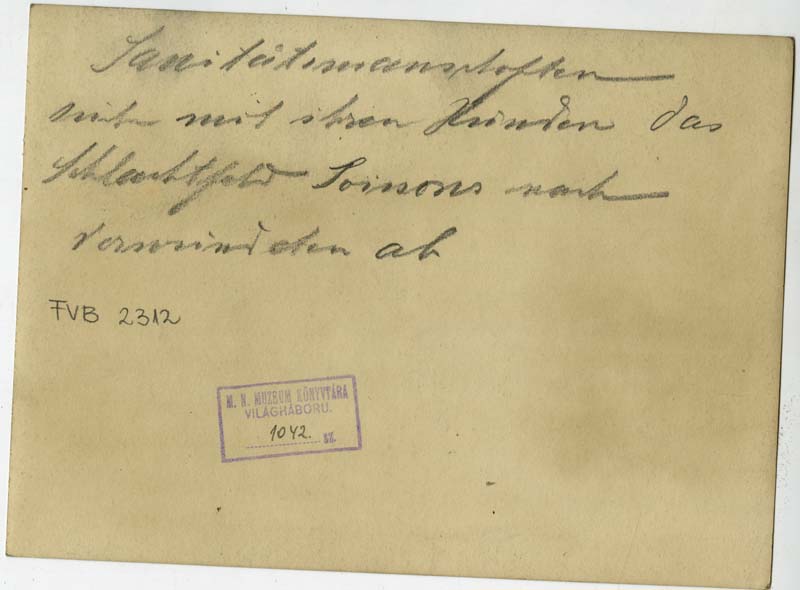 Sanitätsmannschaften
mit ihren Hunden das
Schlachtfeld Soissons nach
Verwundeten ab
FVB 2312
M. N. MUZEUM KÖNYVTÁRA
VILÁGHÁBORU.
1042. sz.